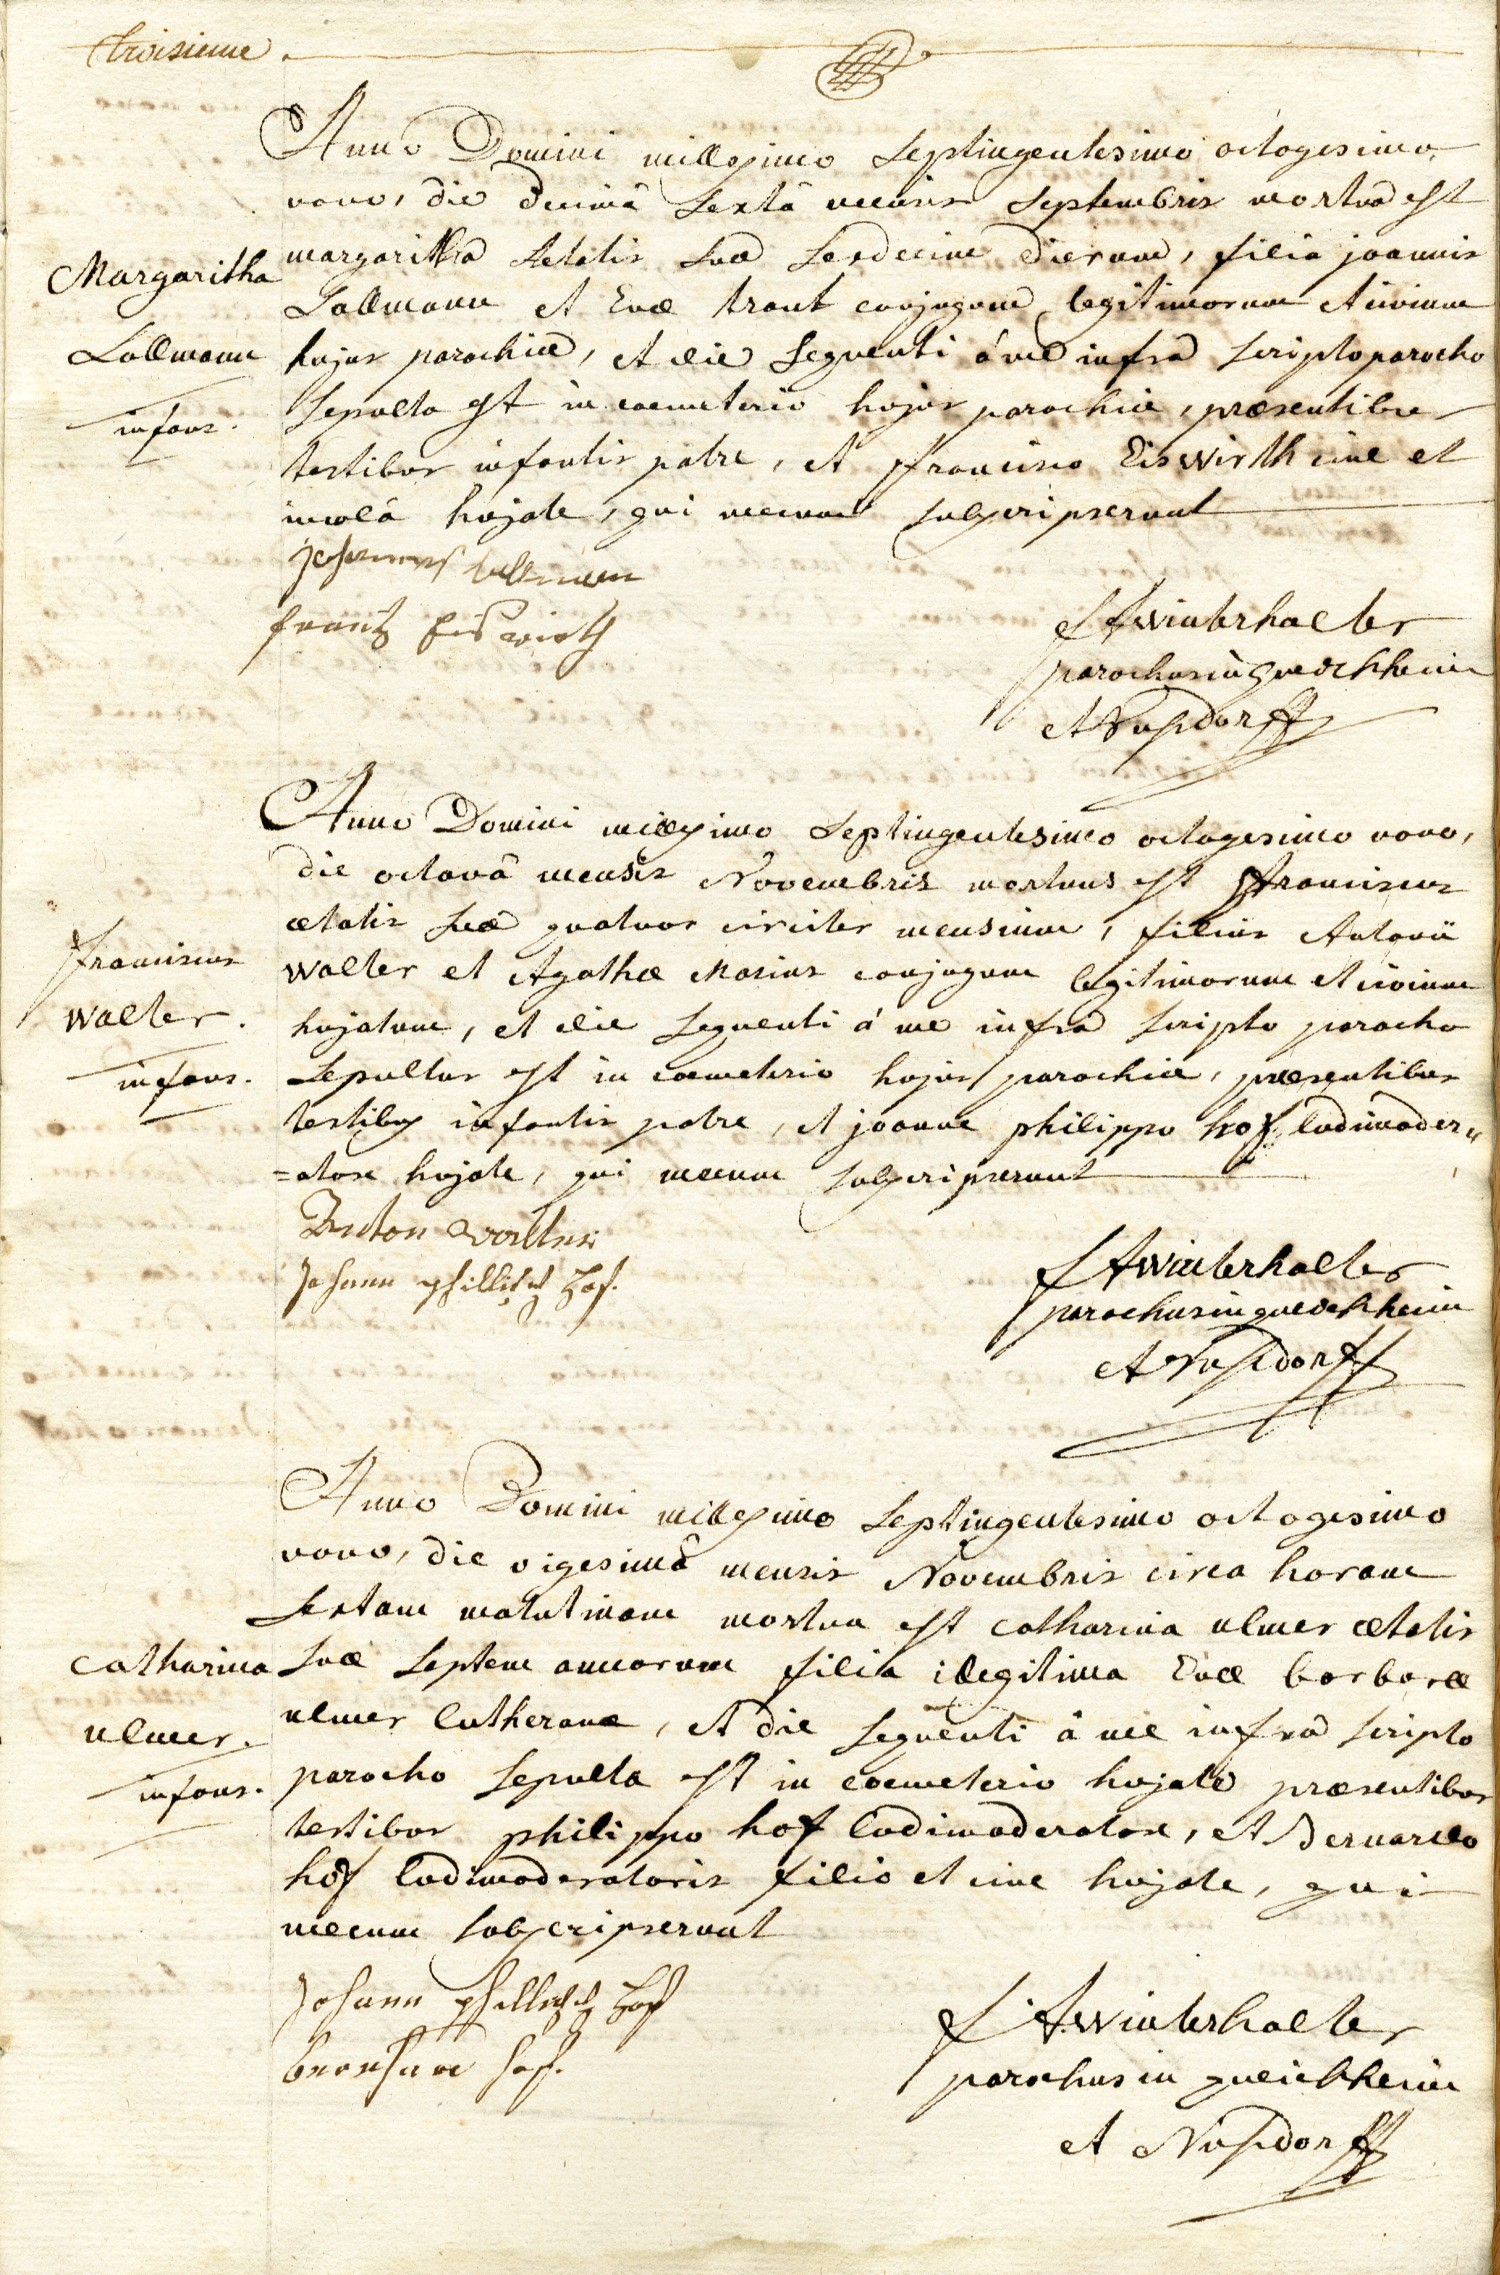 troisieme
Anno Domini millesimo septingentesimo octogesimo
nono, die decimâ sextâ mensis septembris mortua est
Margaritha
margaritha aetatis suae sexdecim dierum, filia joannis
Lallmann et Evae traut conjugum legitimorum et civium
Lallmann
hujus parochiae, et die sequenti á me infra scripto parocho
infans.
sepulta est in coemeterio hujus parochiae, praesentibus
testibus infantis patre, et francisco Eiswirth cive et
incolâ hujate, qui mecum subscripserunt
Johannes Lallmann
frantz Eiswirth
F A Winterhalter
parochus in queichheim
et Nusdorff
Anno Domini millesimo septingentesimo octogesimo nono,
die octavâ mensis Novembris mortuus est franciscus
aetatis suae quatuor circiter mensium, filius Antonii
franciscus
walter et Agathae Marius conjugum legitimorum et civium
walter.
hujatum, et die sequenti á me infra scripto parocho
infans.
sepultus est in coemeterio hujus parochiae, praesentibus
testibus infantis patre, et joanne philippo hof ludimoder=
=atore hujate, qui mecum subscripserunt
Anton Walter
Johann phillipp Hof.
F A Winterhalter
parochus in queichheim
et Nusdorff
Anno Domini millesimo septingentesimo octogesimo
nono, die vigesimâ mensis Novembris circa horam
sextam matutinam mortua est catharina ulmer aetatis
catharina
suae septem annorum filia illegitima Evae barbarae
ulmer.
ulmer lutheranae, et die sequenti â me infrâ scripto
infans.
parocho sepulta est in coemeterio hujate praesentibus
testibus philippo hof ludimoderatore, et Bernardo
hof ludimoderatoris filio et cive hujate, qui
mecum subscripserunt
Johann phillipp Hof
bernhard hof.
F. A. Winterhalter
parochus in queichheim
et Nusdorff